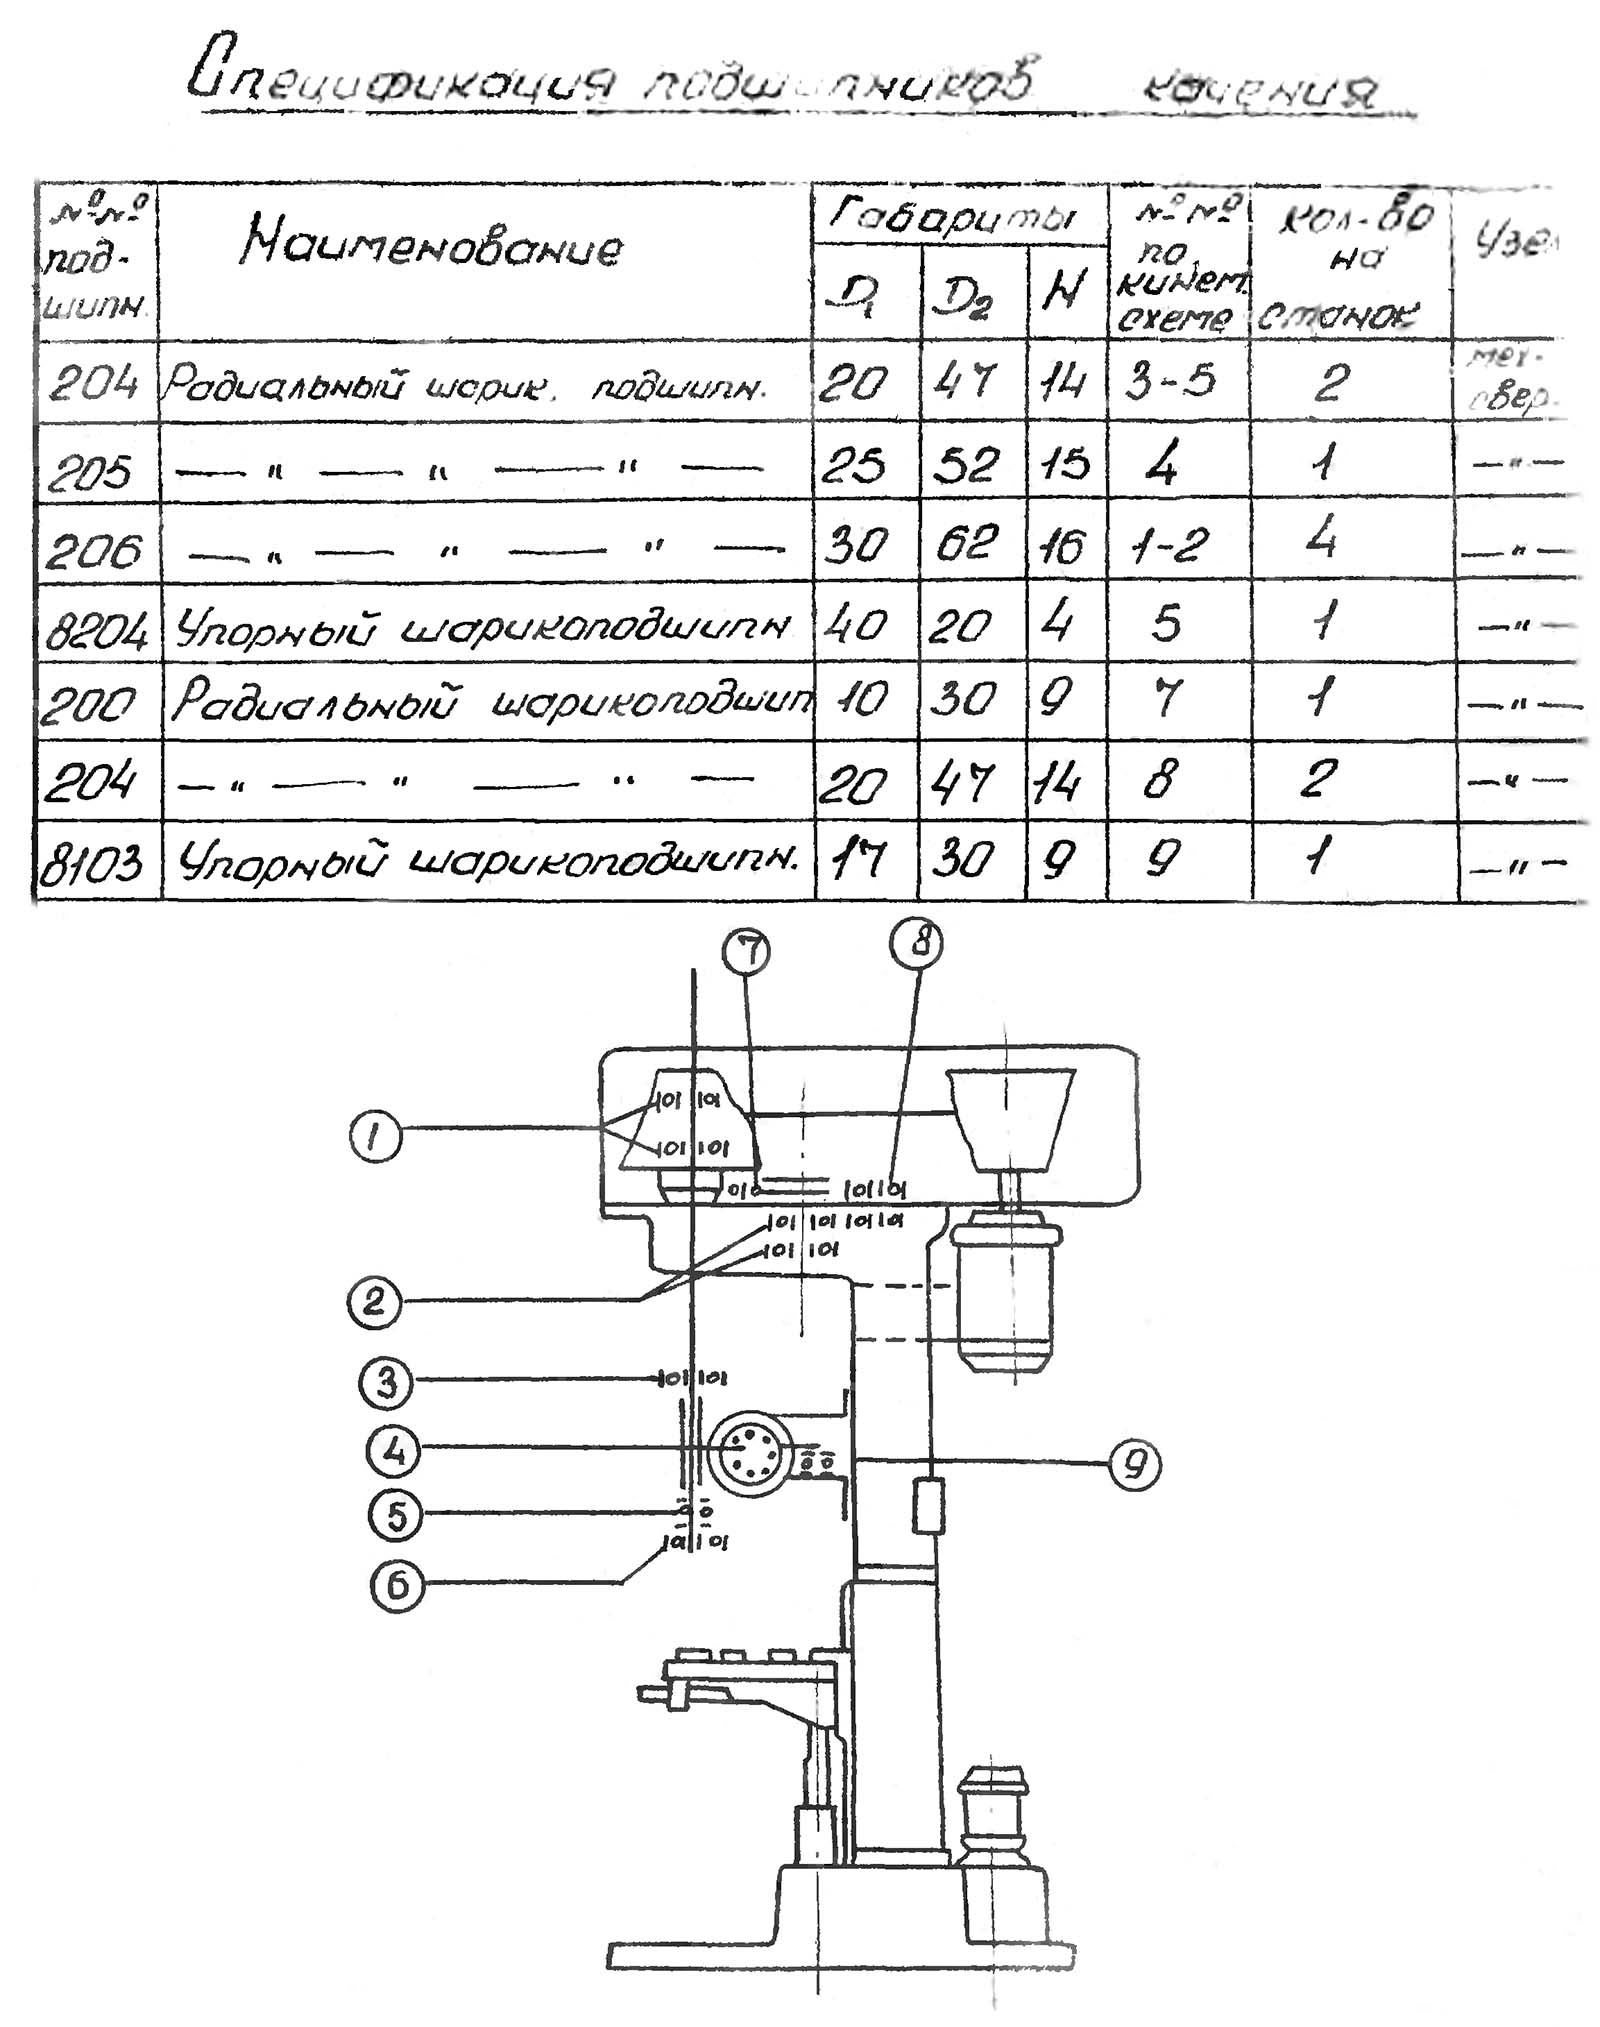 Спецификация подшипников качения
№№ под- шипн. Наименование Габариты D1 D2 H №№ по кинем. схеме кол-во на станок Узел
204 Радиальный шарик. подшипн. 20 47 14 3-5 2 мех. свер.
205 — " — " — " — 25 52 15 4 1 — " —
206 — " — " — " — 30 62 16 1-2 4 — " —
8204 Упорный шарикоподшипн 40 20 4 5 1 — " —
200 Радиальный шарикоподшип 10 30 9 7 1 — " —
204 — " — " — " — 20 47 14 8 2 — " —
8103 Упорный шарикоподшипн. 17 30 9 9 1 — " —
7
8
1
2
3
4
9
5
6